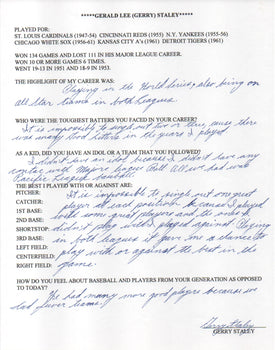 *****GERALD LEE (GERRY) STALEY*****
PLAYED FOR:
ST. LOUIS CARDINALS (1947-54) CINCINNATI REDS (1955) N.Y. YANKEES (1955-56)
CHICAGO WHITE SOX (1956-61) KANSAS CITY A's (1961) DETROIT TIGERS (1961)
WON 134 GAMES AND LOST 111 IN HIS MAJOR LEAGUE CAREER.
WON 10 OR MORE GAMES 6 TIMES.
WENT 19-13 IN 1951 AND 18-9 IN 1953.
THE HIGHLIGHT OF MY CAREER WAS:
Playing in the World Series, also being on
All Star teams in both Leagues.
WHO WERE THE TOUGHEST BATTERS YOU FACED IN YOUR CAREER?
It is impossible to single out one or two, cause there
was many Good hitters in the years I played
AS A KID, DID YOU HAVE AN IDOL OR A TEAM THAT YOU FOLLOWED?
I didn't have an idol because I didn't have any
contact with Major league Ball. All we had was
Pacific League baseball.
THE BEST I PLAYED WITH OR AGAINST ARE:
PITCHER: It is impossible to single out one great
CATCHER: player at each position because I played
1ST BASE: with some great players and the ones I
2ND BASE: didn't play with I played against. Playing
SHORTSTOP:
3RD BASE: in both leagues it gave me a chance to
LEFT FIELD: play with or against the best in the
CENTERFIELD: game.
RIGHT FIELD:
HOW DO YOU FEEL ABOUT BASEBALL AND PLAYERS FROM YOUR GENERATION AS OPPOSED
TO TODAY?
We had many more good players because we
had fewer teams.
Gerry Staley
GERRY STALEY